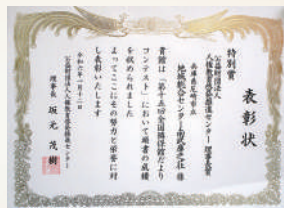 表彰状
特別賞
公益財団法人
人権教育啓発推進センター理事長賞
兵庫県尼崎市立
地域総合センター上ノ島 様
貴館は「第十五回全国隣保館だより
コンテスト」において頭書の成績
を収められました
よってここにその努力と栄誉に対
し表彰いたします
令和六年一月十二日
公益財団法人人権教育啓発推進センター
理事長 坂元茂樹